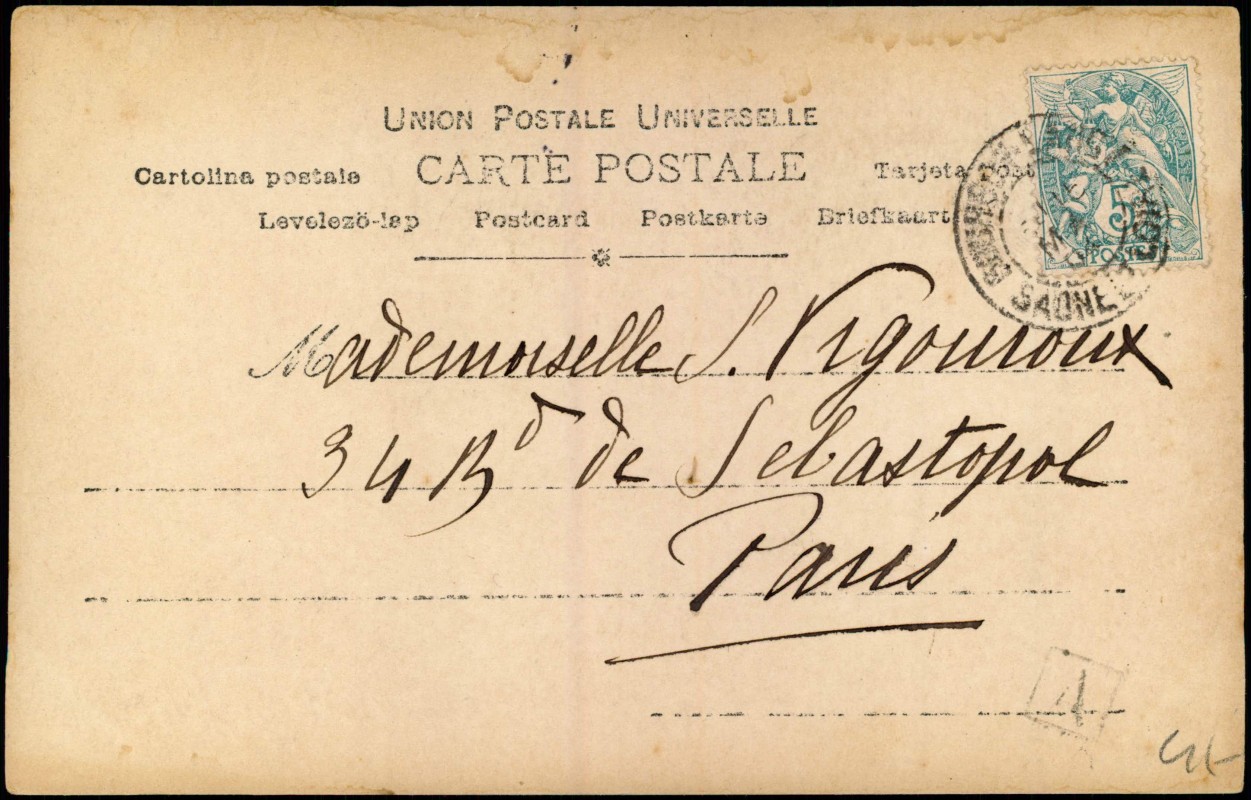 UNION POSTALE UNIVERSELLE
CARTE POSTALE
Cartolina postale
Tarjeta Post
Levelezö-lap Postcard Postkarte Briefkaart
FRANÇAISE
5
POSTES
SAONE
Mademoiselle S. Vigouroux
34 Bd de Sebastopol
Paris
A